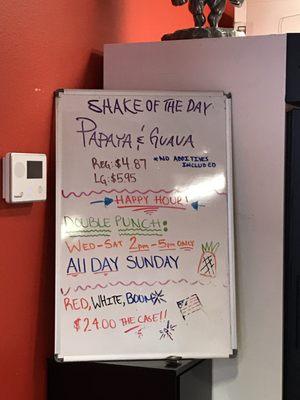 SHAKE OF THE DAY
PAPAYA & GUAVA
REG: $4.87
*NO ADDITIVES INCLUDED
LG: $5.95
HAPPY HOUR!
DOUBLE PUNCH:
WED-SAT 2pm-5pm ONLY
ALL DAY SUNDAY
RED, WHITE, BOOM
$24.00 THE CASE!!